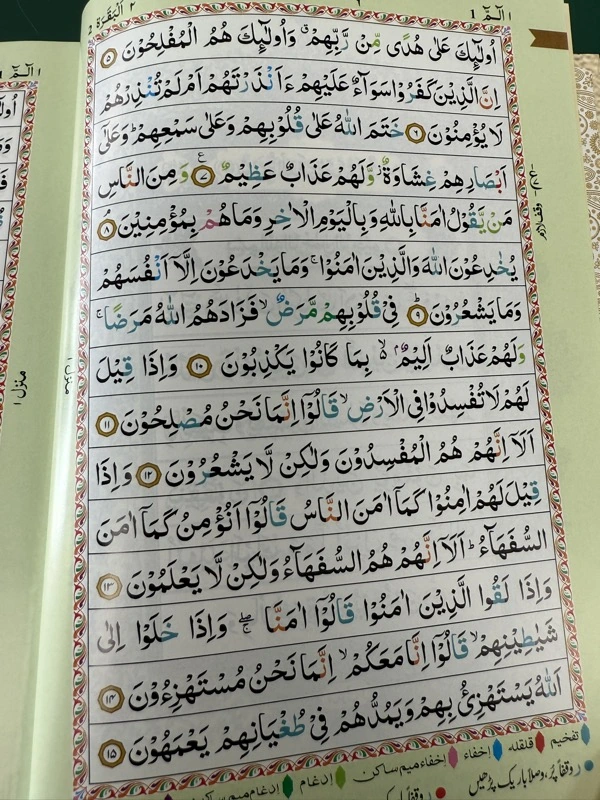 الٓمّٓ ١
اَلْبَقَرَة ٢
اُولٰٓئِكَ عَلٰى هُدًى مِّنْ رَّبِّهِمْ ۙ وَاُولٰٓئِكَ هُمُ الْمُفْلِحُوْنَ ۵
اِنَّ الَّذِيْنَ كَفَرُوْا سَوَآءٌ عَلَيْهِمْ ءَاَنْذَرْتَهُمْ اَمْ لَمْ تُنْذِرْهُمْ
لَا يُؤْمِنُوْنَ ۶ خَتَمَ اللّٰهُ عَلٰى قُلُوْبِهِمْ وَعَلٰى سَمْعِهِمْ ؕ وَعَلٰٓى
اَبْصَارِهِمْ غِشَاوَةٌ ؗ وَّلَهُمْ عَذَابٌ عَظِيْمٌ ۷ وَمِنَ النَّاسِ
مَنْ يَّقُوْلُ اٰمَنَّا بِاللّٰهِ وَبِالْيَوْمِ الْاٰخِرِ وَمَا هُمْ بِمُؤْمِنِيْنَ ۸
يُخٰدِعُوْنَ اللّٰهَ وَالَّذِيْنَ اٰمَنُوْا ۚ وَمَا يَخْدَعُوْنَ اِلَّاۤ اَنْفُسَهُمْ
وَمَا يَشْعُرُوْنَ ۹ فِىْ قُلُوْبِهِمْ مَّرَضٌ ۙ فَزَادَهُمُ اللّٰهُ مَرَضًا ۚ
وَلَهُمْ عَذَابٌ اَلِيْمٌ ۢ ۙ۬ بِمَا كَانُوْا يَكْذِبُوْنَ ۱۰ وَاِذَا قِيْلَ
لَهُمْ لَا تُفْسِدُوْا فِى الْاَرْضِ ۙ قَالُوْۤا اِنَّمَا نَحْنُ مُصْلِحُوْنَ ۱۱
اَلَاۤ اِنَّهُمْ هُمُ الْمُفْسِدُوْنَ وَلٰكِنْ لَّا يَشْعُرُوْنَ ۱۲ وَاِذَا
قِيْلَ لَهُمْ اٰمِنُوْا كَمَاۤ اٰمَنَ النَّاسُ قَالُوْۤا اَنُؤْمِنُ كَمَاۤ اٰمَنَ
السُّفَهَآءُ ؕ اَلَاۤ اِنَّهُمْ هُمُ السُّفَهَآءُ وَلٰكِنْ لَّا يَعْلَمُوْنَ ۱۳
وَاِذَا لَقُوا الَّذِيْنَ اٰمَنُوْا قَالُوْۤا اٰمَنَّا ۖۚ وَاِذَا خَلَوْا اِلٰى
شَيٰطِيْنِهِمْ ۙ قَالُوْۤا اِنَّا مَعَكُمْ ۙ اِنَّمَا نَحْنُ مُسْتَهْزِءُوْنَ ۱۴
اَللّٰهُ يَسْتَهْزِئُ بِهِمْ وَيَمُدُّهُمْ فِىْ طُغْيَانِهِمْ يَعْمَهُوْنَ ۱۵
وقف لازم
منزل ۱
منزل ۱
تفخیم قلقلہ إخفاء إخفاء میم ساکن إدغام إدغام میم ساکن
روقفاً پُر، وصلاً باریک پڑھیں